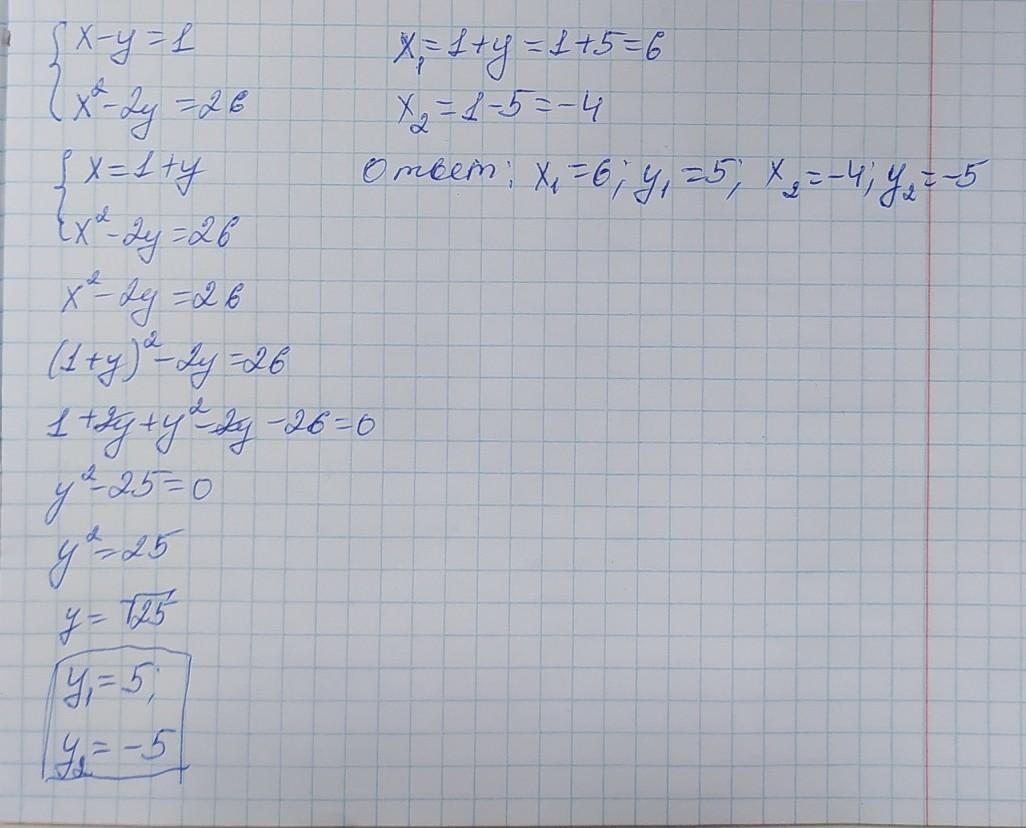 x-y=1
x²-2y=26
x=1+y
x²-2y=26
x²-2y=26
(1+y)²-2y=26
1+2y+y²-2y-26=0
y²-25=0
y²=25
y=√25
y₁=5;
y₂=-5
x₁=1+y=1+5=6
x₂=1-5=-4
Ответ: x₁=6; y₁=5; x₂=-4; y₂=-5